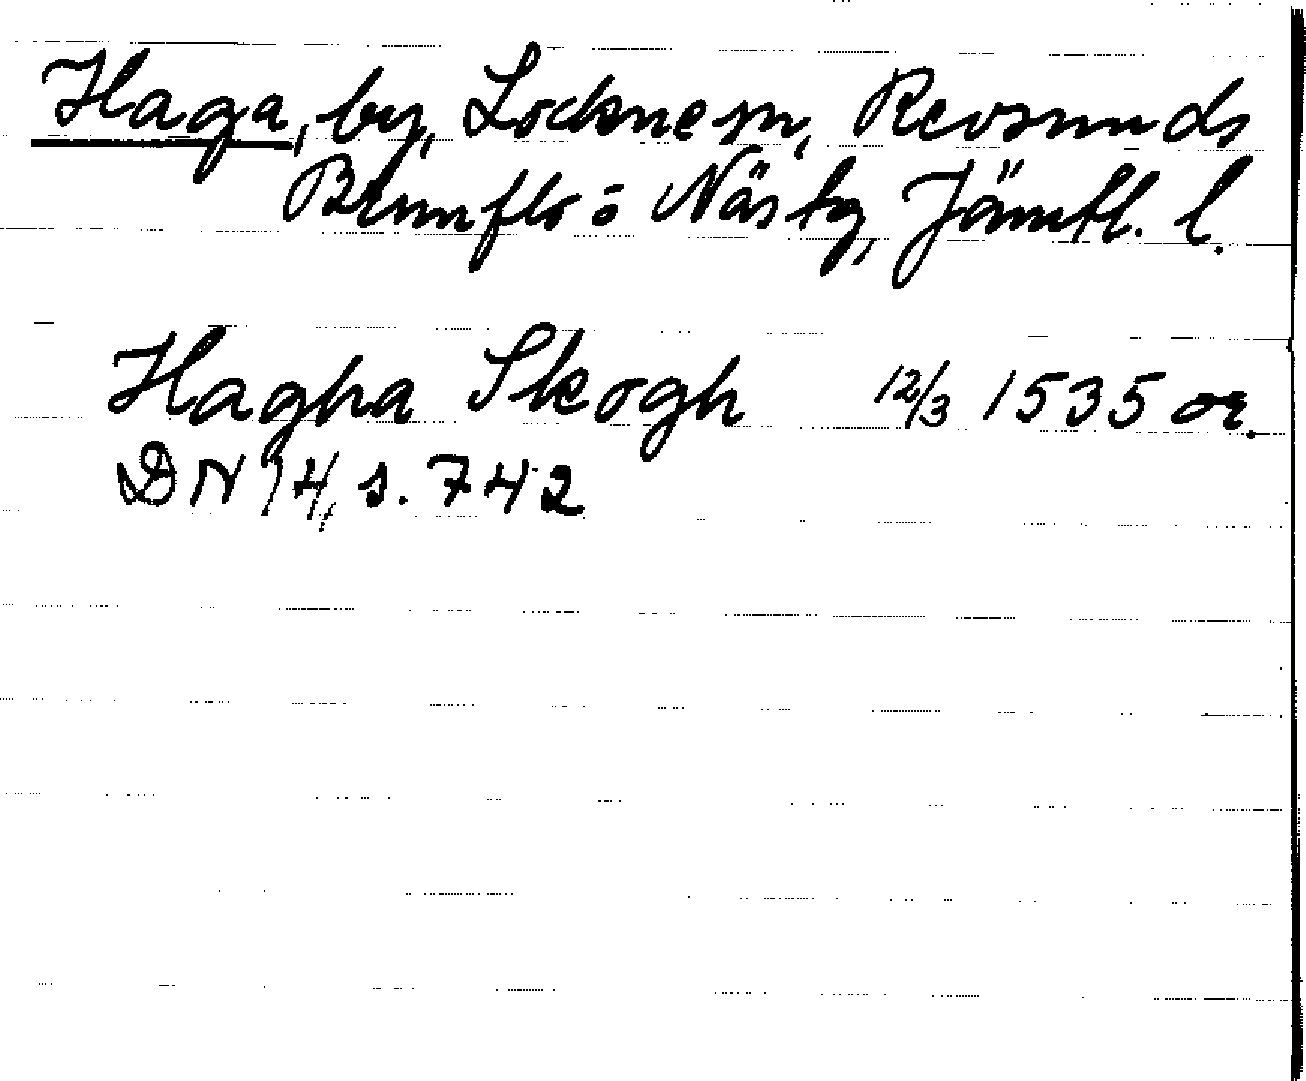 Haga, by, Lockne sn, Revsunds
Brunflo o Näs tg, Jämtl. l.
Hagha Skogh 12/3 1535 or.
DN 14, s. 742